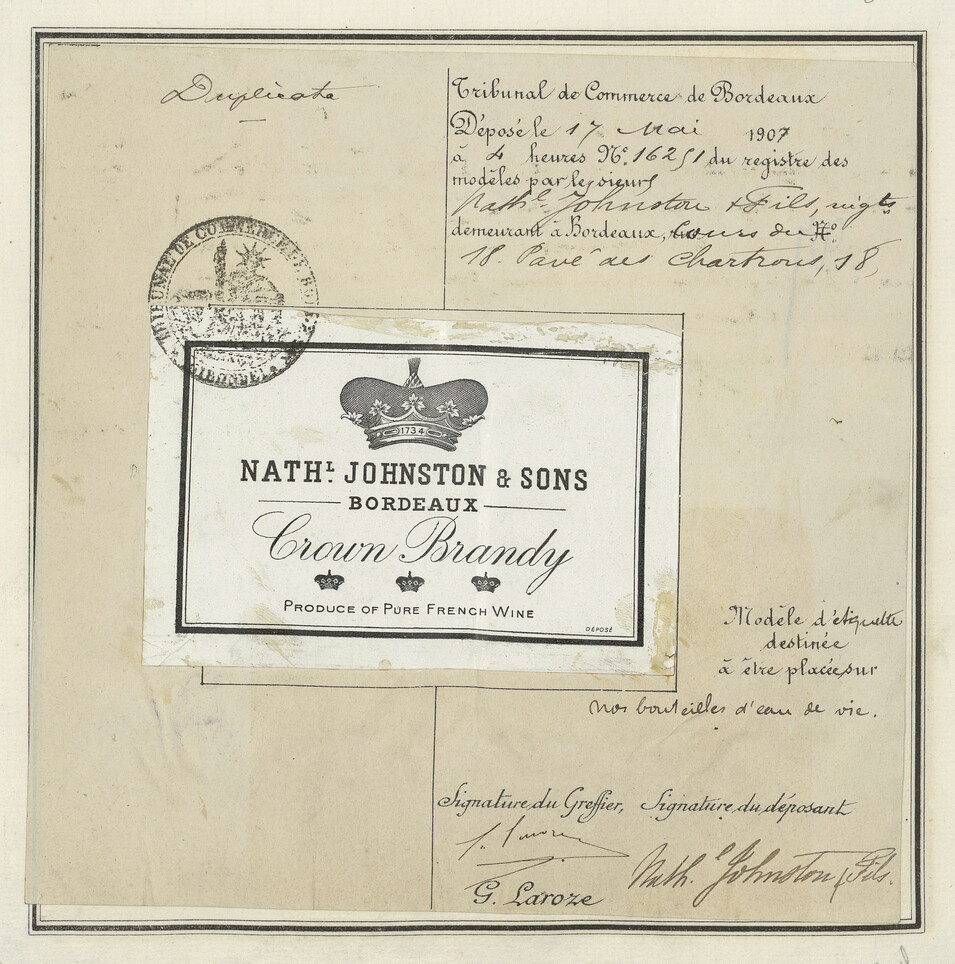 Duplicata
Tribunal de Commerce de Bordeaux
Déposé le 17 Mai 1907
à 4 heures Nº. 16251 du registre des
modèles par le sieurs
Nathl. Johnston & Fils, négts
demeurant à Bordeaux, cours du Nº
18. Pavé des Chartrons, 18,
TRIBUNAL DE COMMERCE DE BORDEAUX
1734
NATHL. JOHNSTON & SONS
BORDEAUX
Crown Brandy
PRODUCE OF PURE FRENCH WINE
DÉPOSÉ
Modèle d'étiquette
destinée
à être placée sur
nos bouteilles d'eau de vie.
Signature du Greffier, Signature du déposant
G. Laroze
Nath.l Johnston & Fils.